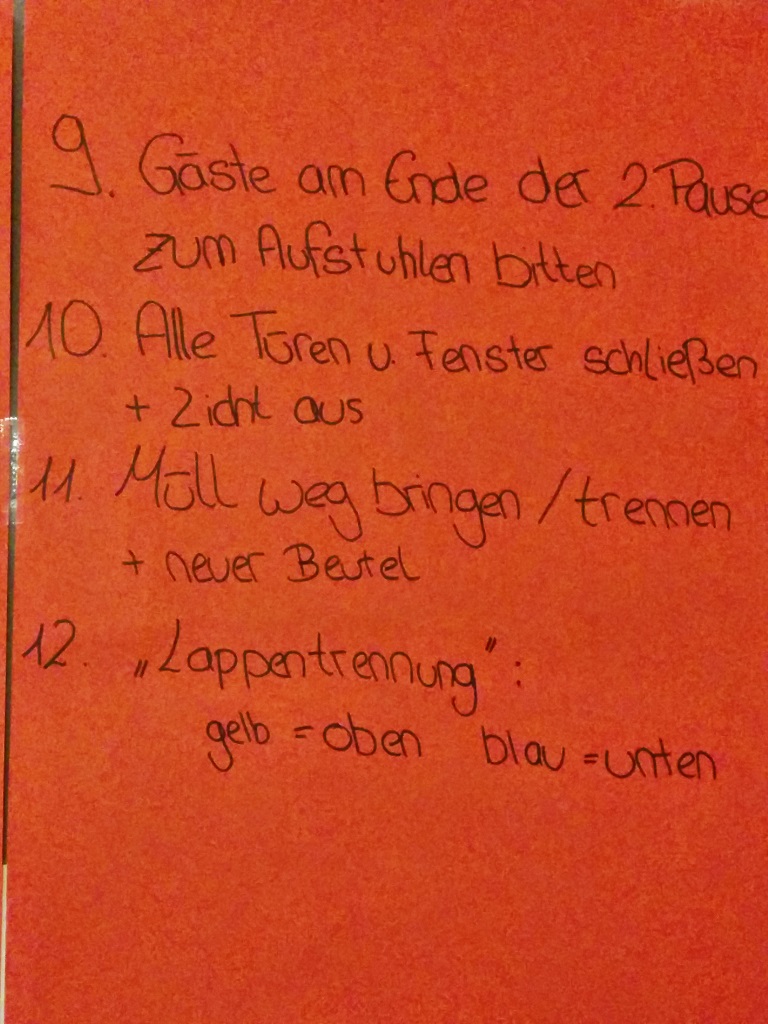 9. Gäste am Ende der 2. Pause
zum Aufstuhlen bitten
10. Alle Türen u. Fenster schließen
+ Licht aus
11. Müll weg bringen / trennen
+ neuer Beutel
12. „Lappentrennung":
gelb = oben blau = unten